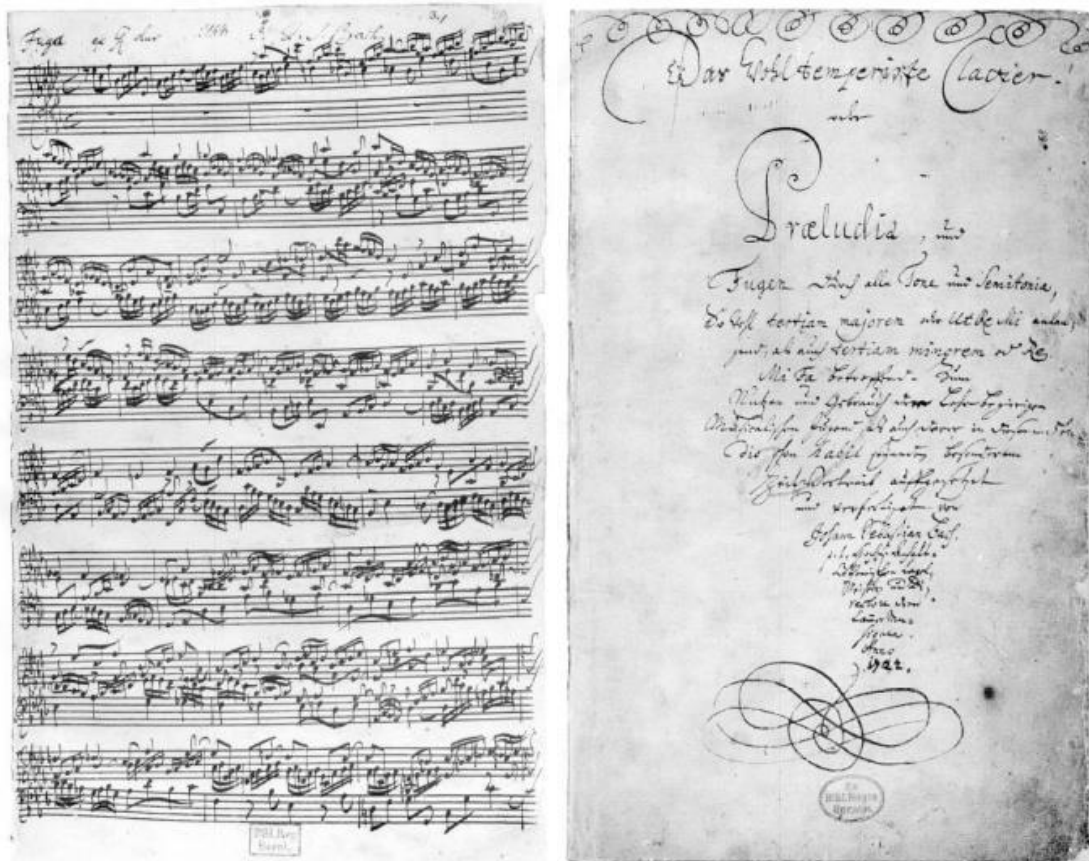 Fuga ex dur Bach
Das Wohltemperirte Clavier.
oder
Præludia, und
Fugen durch alle Tone und Semitonia,
So wohl tertiam majorem oder Ut Re Mi anlan-
gend, als auch tertiam minorem od Re
Mi Fa betreffend. Zum
Nutzen und Gebrauch der Lehrbegierigen
Musicalischen Jugend, als auch derer in diesem stu-
dio schon habil seyenden besonderem
ZeitVertreib auffgesetzet
und verfertiget von
Johann Sebastian Bach.
Anno
1722.